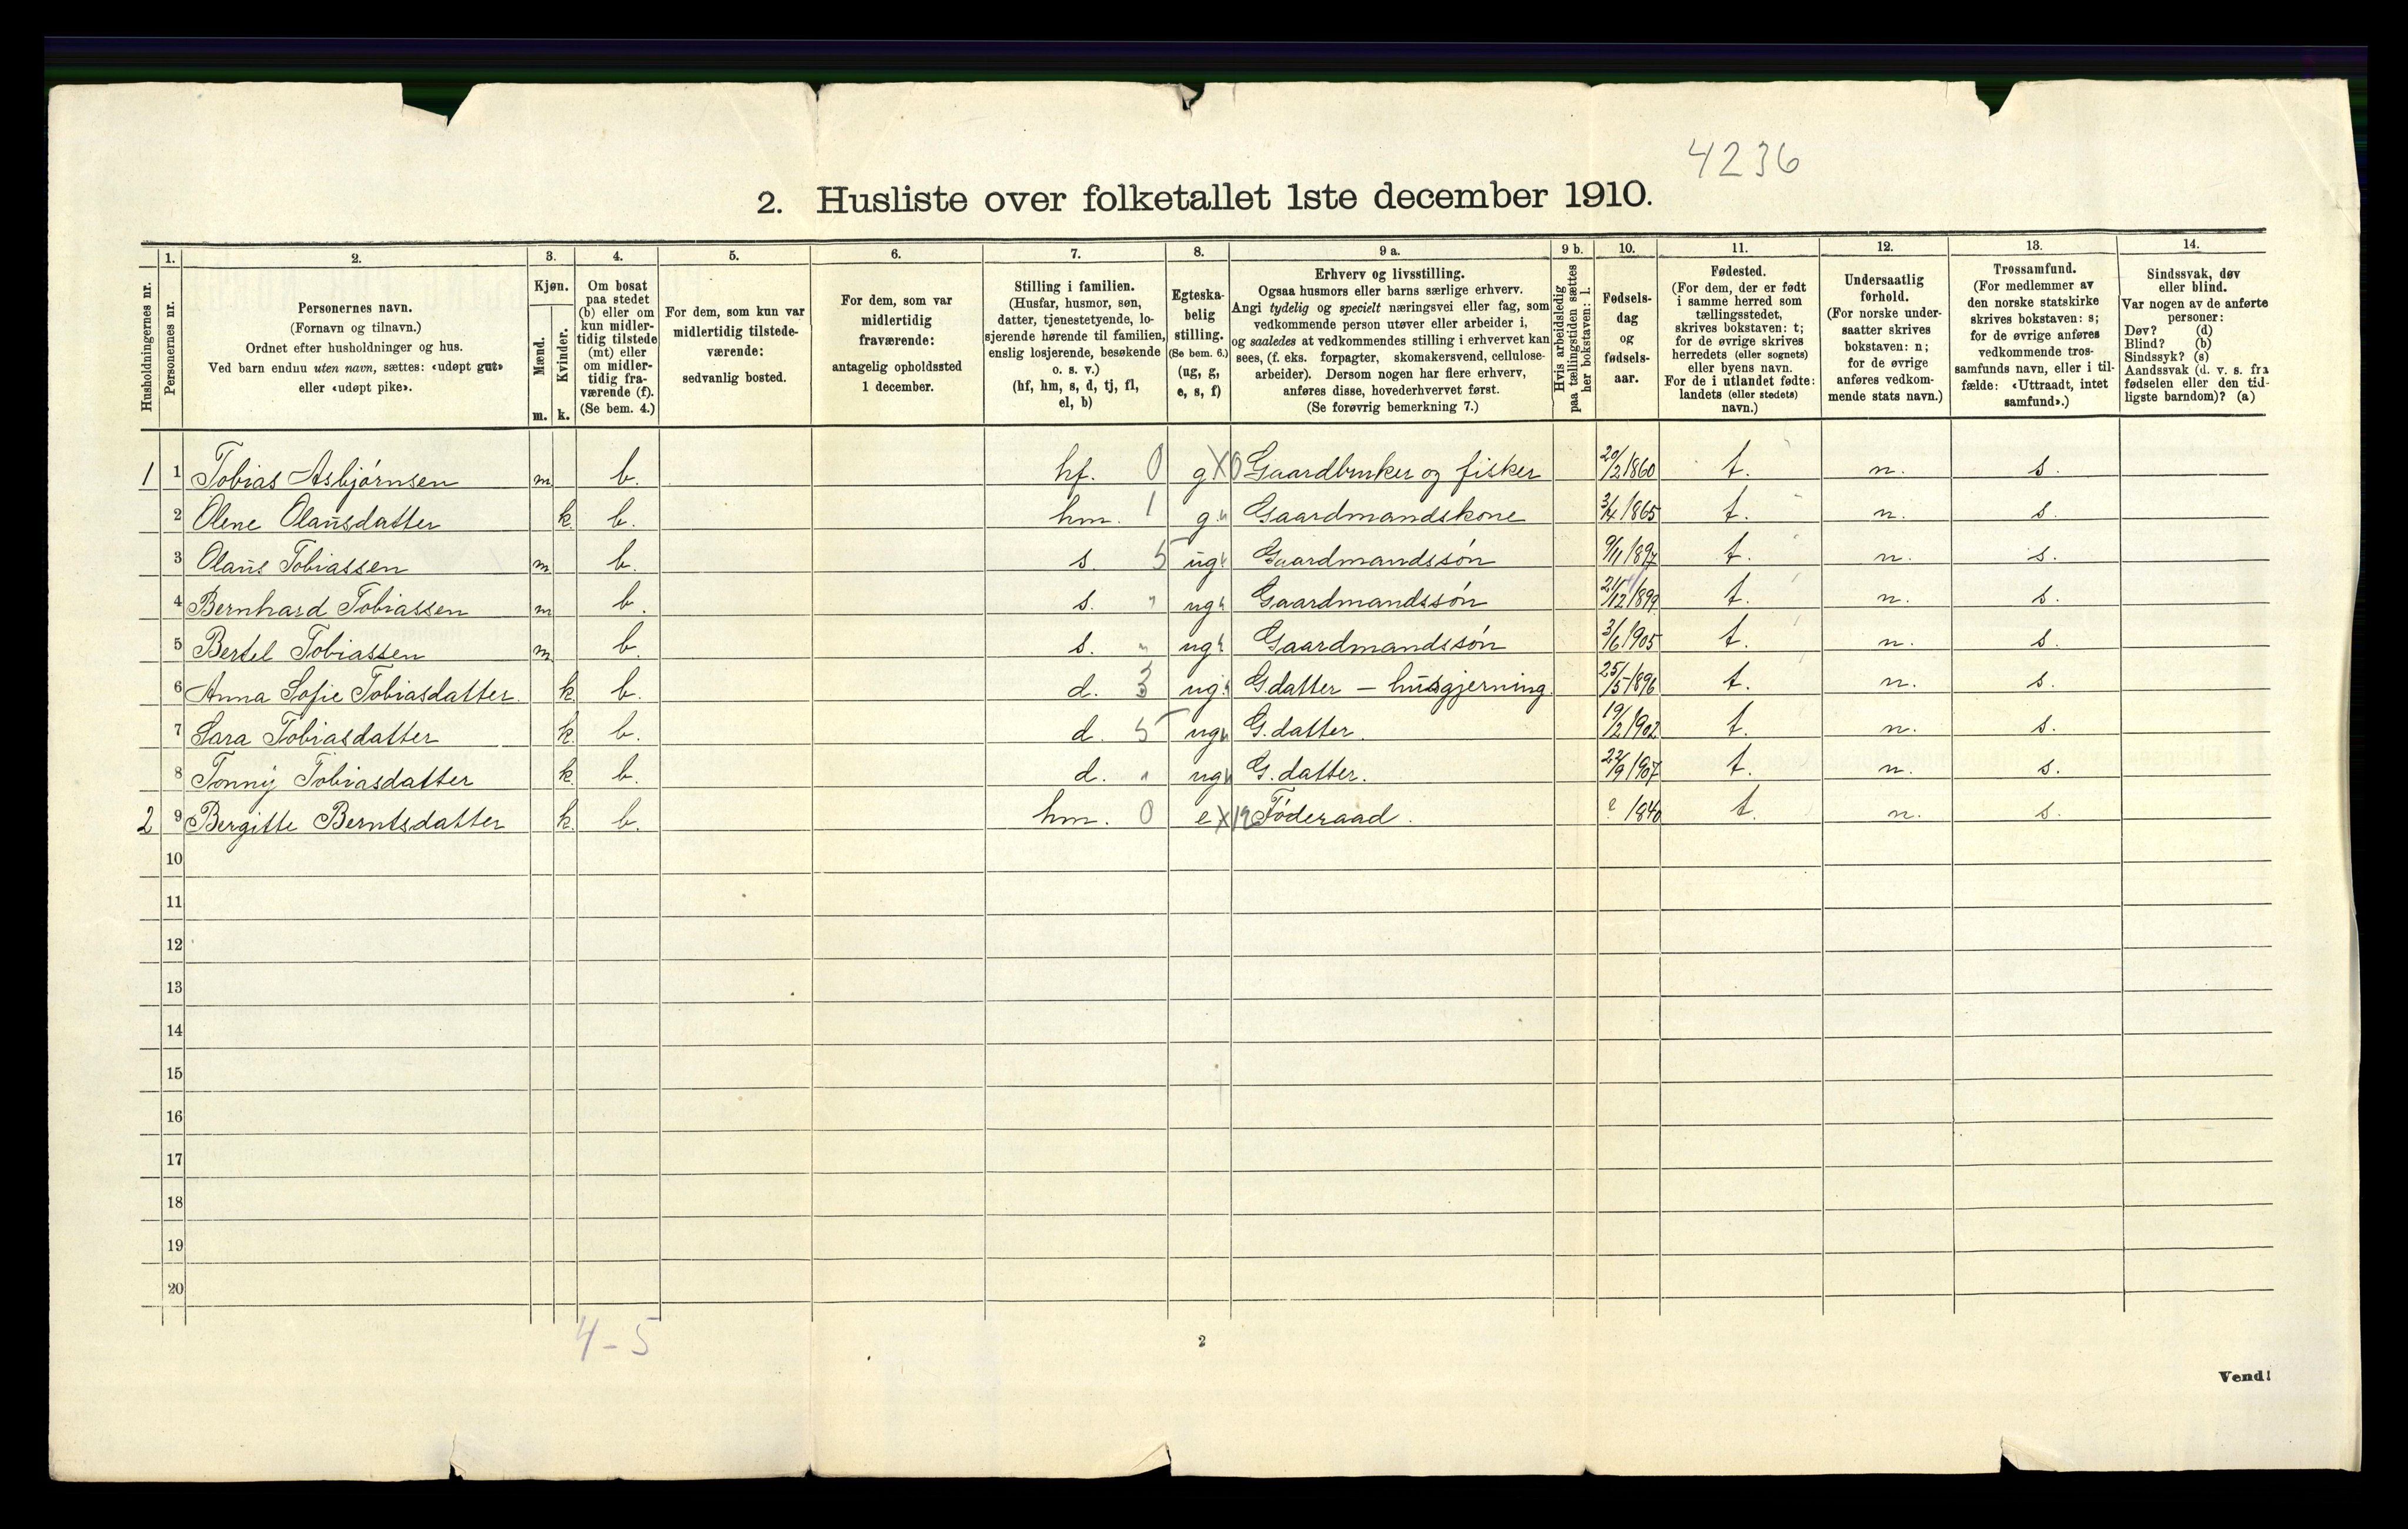 4236
2. Husliste over folketallet 1ste december 1910.
Husholdningernes nr.
1. Personernes nr.
2. Personernes navn. (Fornavn og tilnavn.) Ordnet efter husholdninger og hus. Ved barn endnu uten navn, sættes: «udøpt gut» eller «udøpt pike».
3. Kjøn. Mænd. m. Kvinder. k.
4. Om bosat paa stedet (b) eller om kun midlertidig tilstede (mt) eller om midlertidig fraværende (f). (Se bem. 4.)
5. For dem, som kun var midlertidig tilstedeværende: sedvanlig bosted.
6. For dem, som var midlertidig fraværende: antagelig opholdssted 1 december.
7. Stilling i familien. (Husfar, husmor, søn, datter, tjenestetyende, losjerende hørende til familien, enslig losjerende, besøkende o. s. v.) (hf, hm, s, d, tj, fl, el, b)
8. Egteskabelig stilling. (Se bem. 6.) (ug, g, e, s, f)
9 a. Erhverv og livsstilling. Ogsaa husmors eller barns særlige erhverv. Angi tydelig og specielt næringsvei eller fag, som vedkommende person utøver eller arbeider i, og saaledes at vedkommendes stilling i erhvervet kan sees, (f. eks. forpagter, skomakersvend, cellulosearbeider). Dersom nogen har flere erhverv, anføres disse, hovederhvervet først. (Se forøvrig bemerkning 7.)
9 b. Hvis arbeidsledig paa tællingstiden sættes her bokstaven: l.
10. Fødselsdag og fødselsaar.
11. Fødested. (For dem, der er født i samme herred som tællingsstedet, skrives bokstaven: t; for de øvrige skrives herredets (eller sognets) eller byens navn. For de i utlandet fødte: landets (eller stedets) navn.)
12. Undersaatlig forhold. (For norske undersaatter skrives bokstaven: n; for de øvrige anføres vedkommende stats navn.)
13. Trossamfund. (For medlemmer av den norske statskirke skrives bokstaven: s; for de øvrige anføres vedkommende trossamfunds navn, eller i tilfælde: «Uttraadt, intet samfund».)
14. Sindssvak, døv eller blind. Var nogen av de anførte personer: Døv? (d) Blind? (b) Sindssyk? (s) Aandssvak (d. v. s. fra fødselen eller den tidligste barndom)? (a)
1 1 Tobias Asbjørnsen m b. hf. 0 g X0 Gaardbruker og fisker 20/2 1860 t. n. s.
2 Olene Olaŭsdatter k. b. hm. 1 g. " Gaardmandskone 3/4 1865 t. n. s.
3 Olaŭs Tobiassen m b. s. 5 ug " Gaardmandssøn 9/11 1897 t. n. s.
4 Bernhard Tobiassen m b. s. " ug " Gaardmandssøn 21/12 1899 t. n. s.
5 Bertel Tobiassen m b. s. " ug " Gaardmandssøn 3/6 1905 t. n. s.
6 Anna Sofie Tobiasdatter. k b. d. 3 ug. " G.datter – hŭsgjerning. 25/5 1896 t. n. s.
7 Sara Tobiasdatter k. b. d. 5 ug " G.datter. 19/2 1902 t. n. s.
8 Tonny Tobiasdatter k. b. d. " ug " G.datter. 22/9 1907 t. n. s.
2 9 Bergitte Berntsdatter k. b. hm. 0 e X12 Føderaad. ? 1840 t. n. s.
10
11
12
13
14
15
16
17
18
19
20
4 – 5
2
Vend!